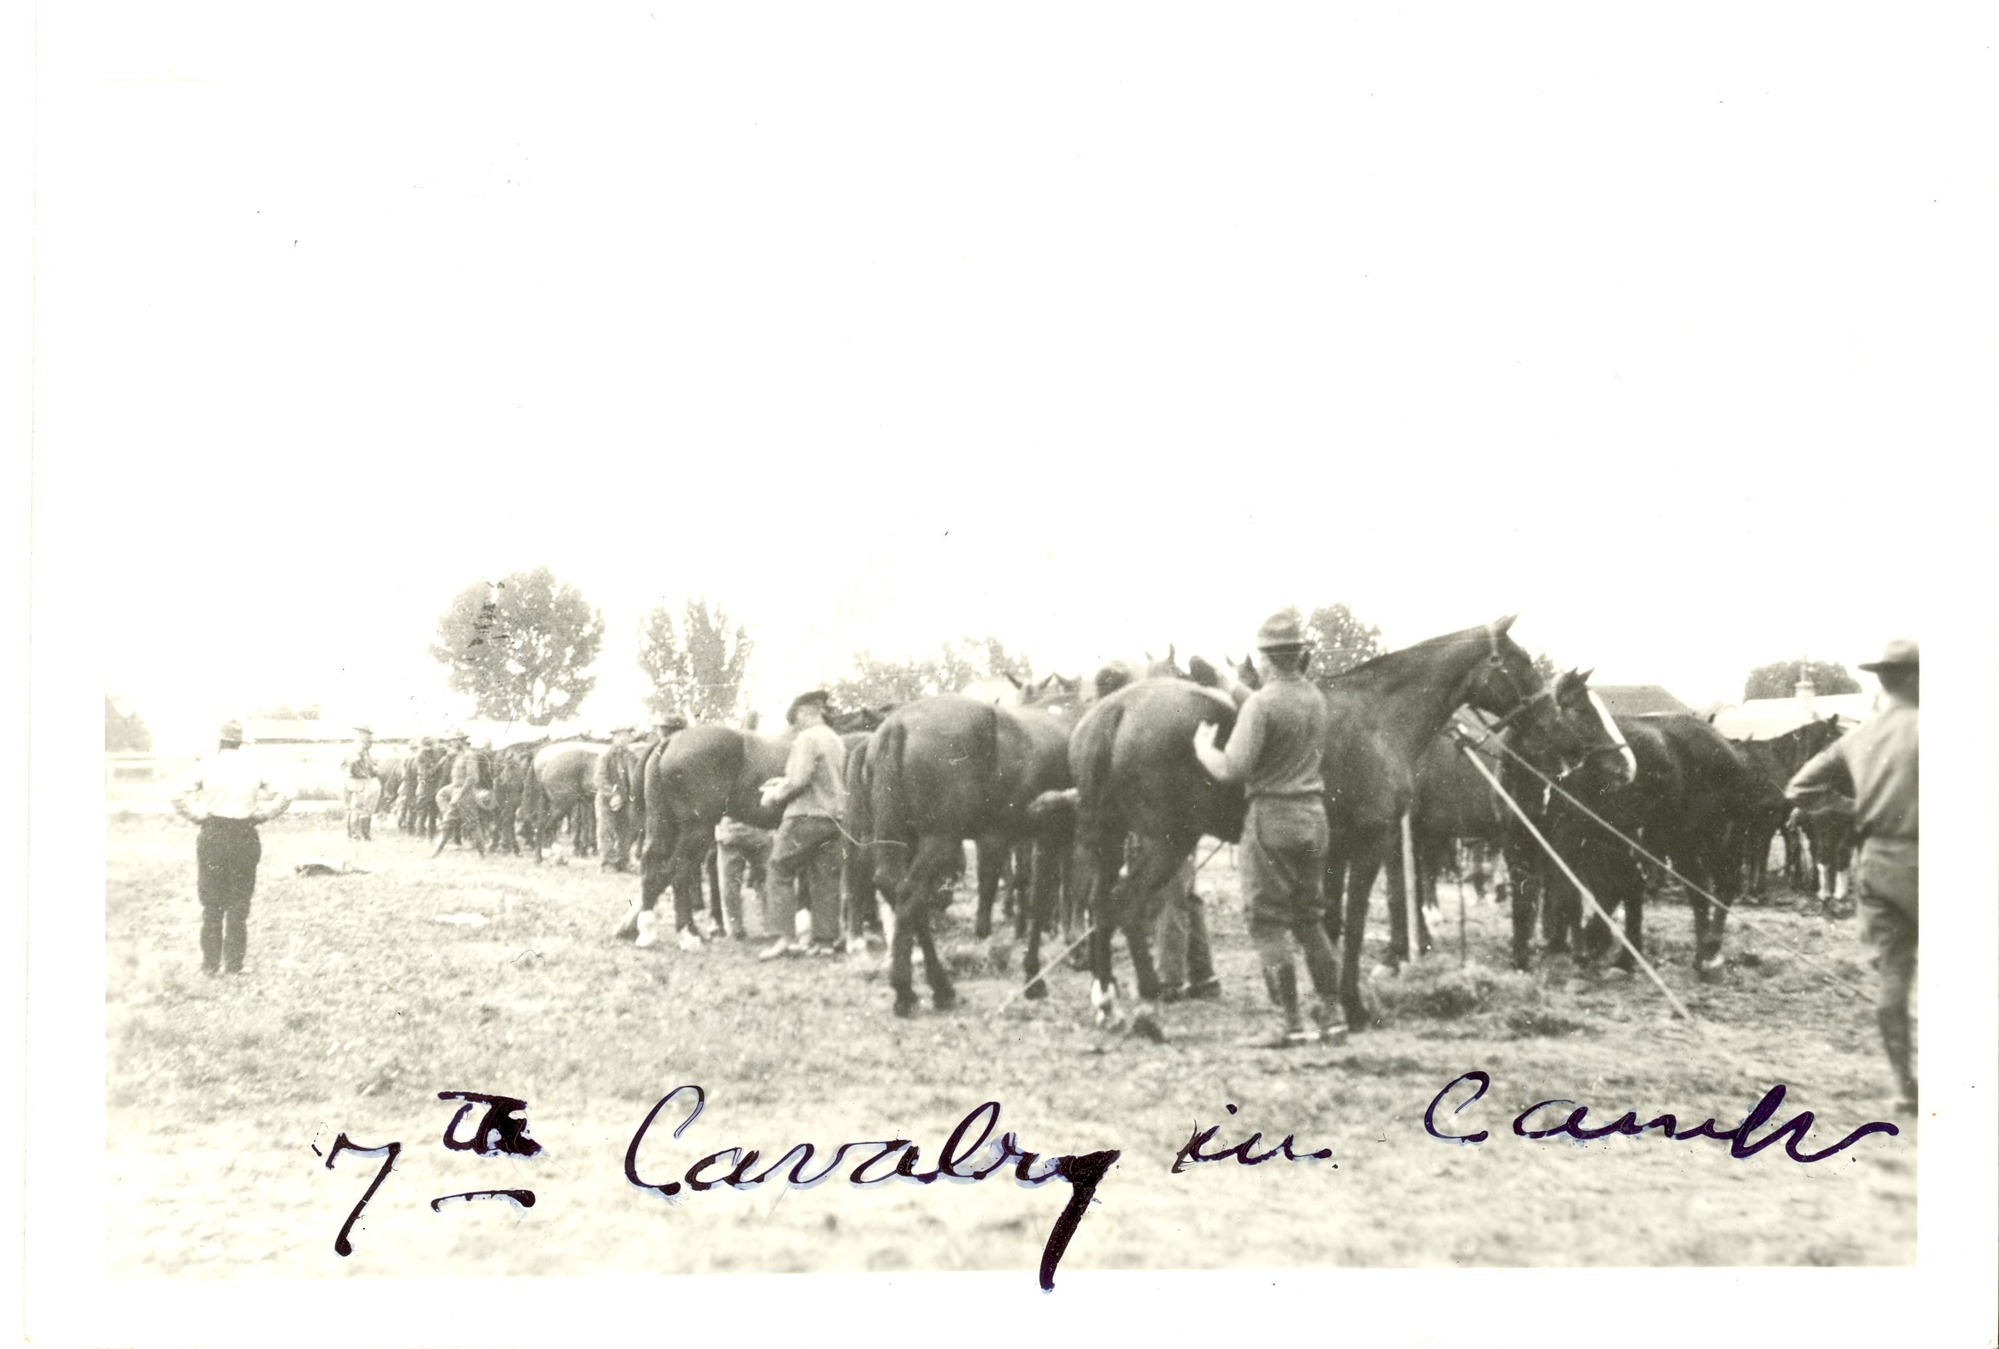 7th Cavalry in Camp